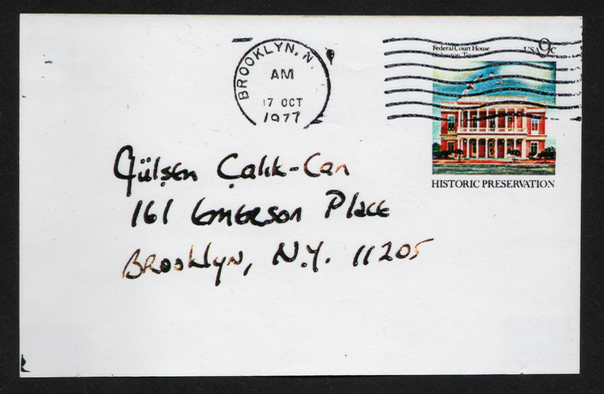 BROOKLYN, N.
AM
17 OCT
1977
Federal Court House
Galveston, Texas
USA 9c
HISTORIC PRESERVATION
Gülşen Çalık-Can
161 Emerson Place
Brooklyn, N.Y. 11205